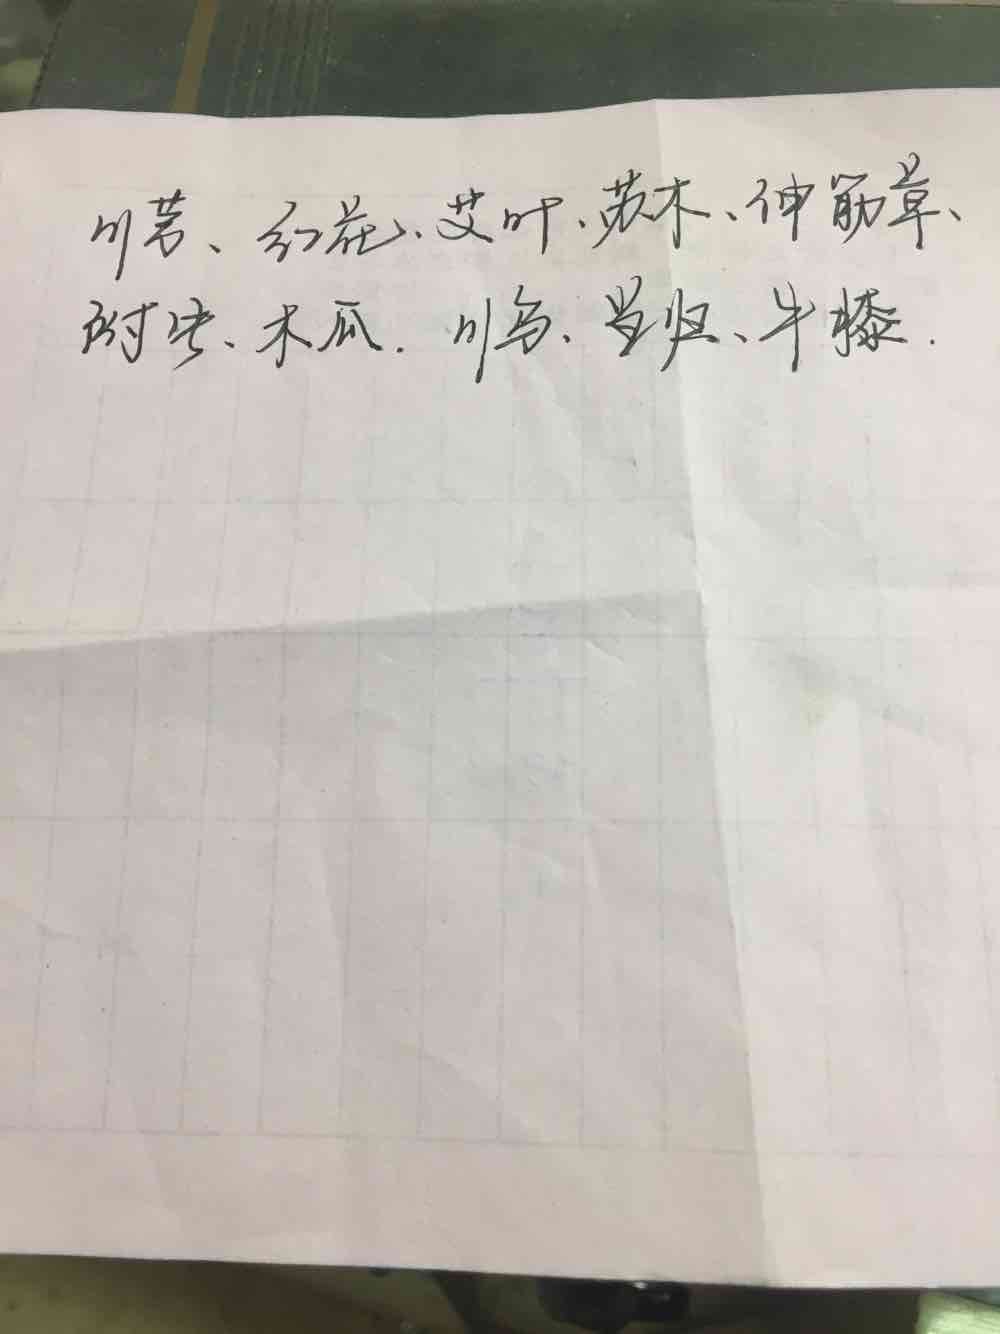 川芎、红花、艾叶、苏木、伸筋草、
附片、木瓜.川乌、当归、牛膝.